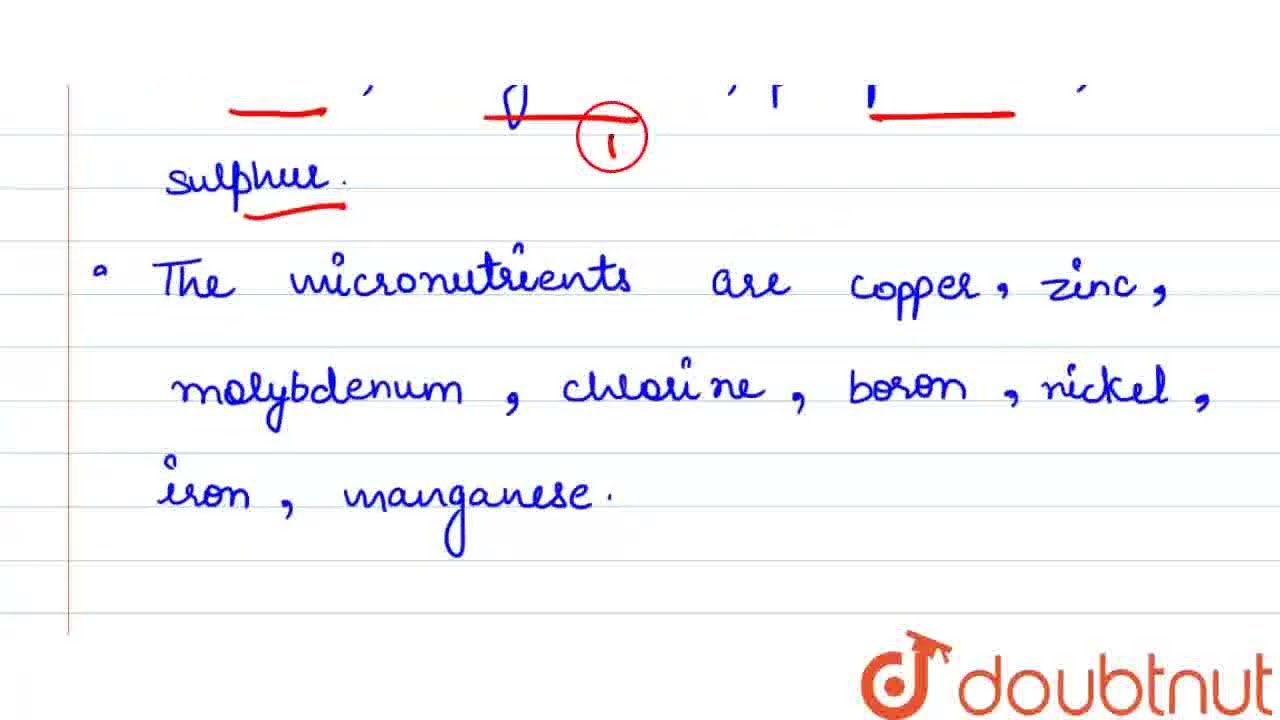 sulphur.
• The micronutrients are copper, zinc,
molybdenum, chlorine, boron, nickel,
iron, manganese.
doubtnut